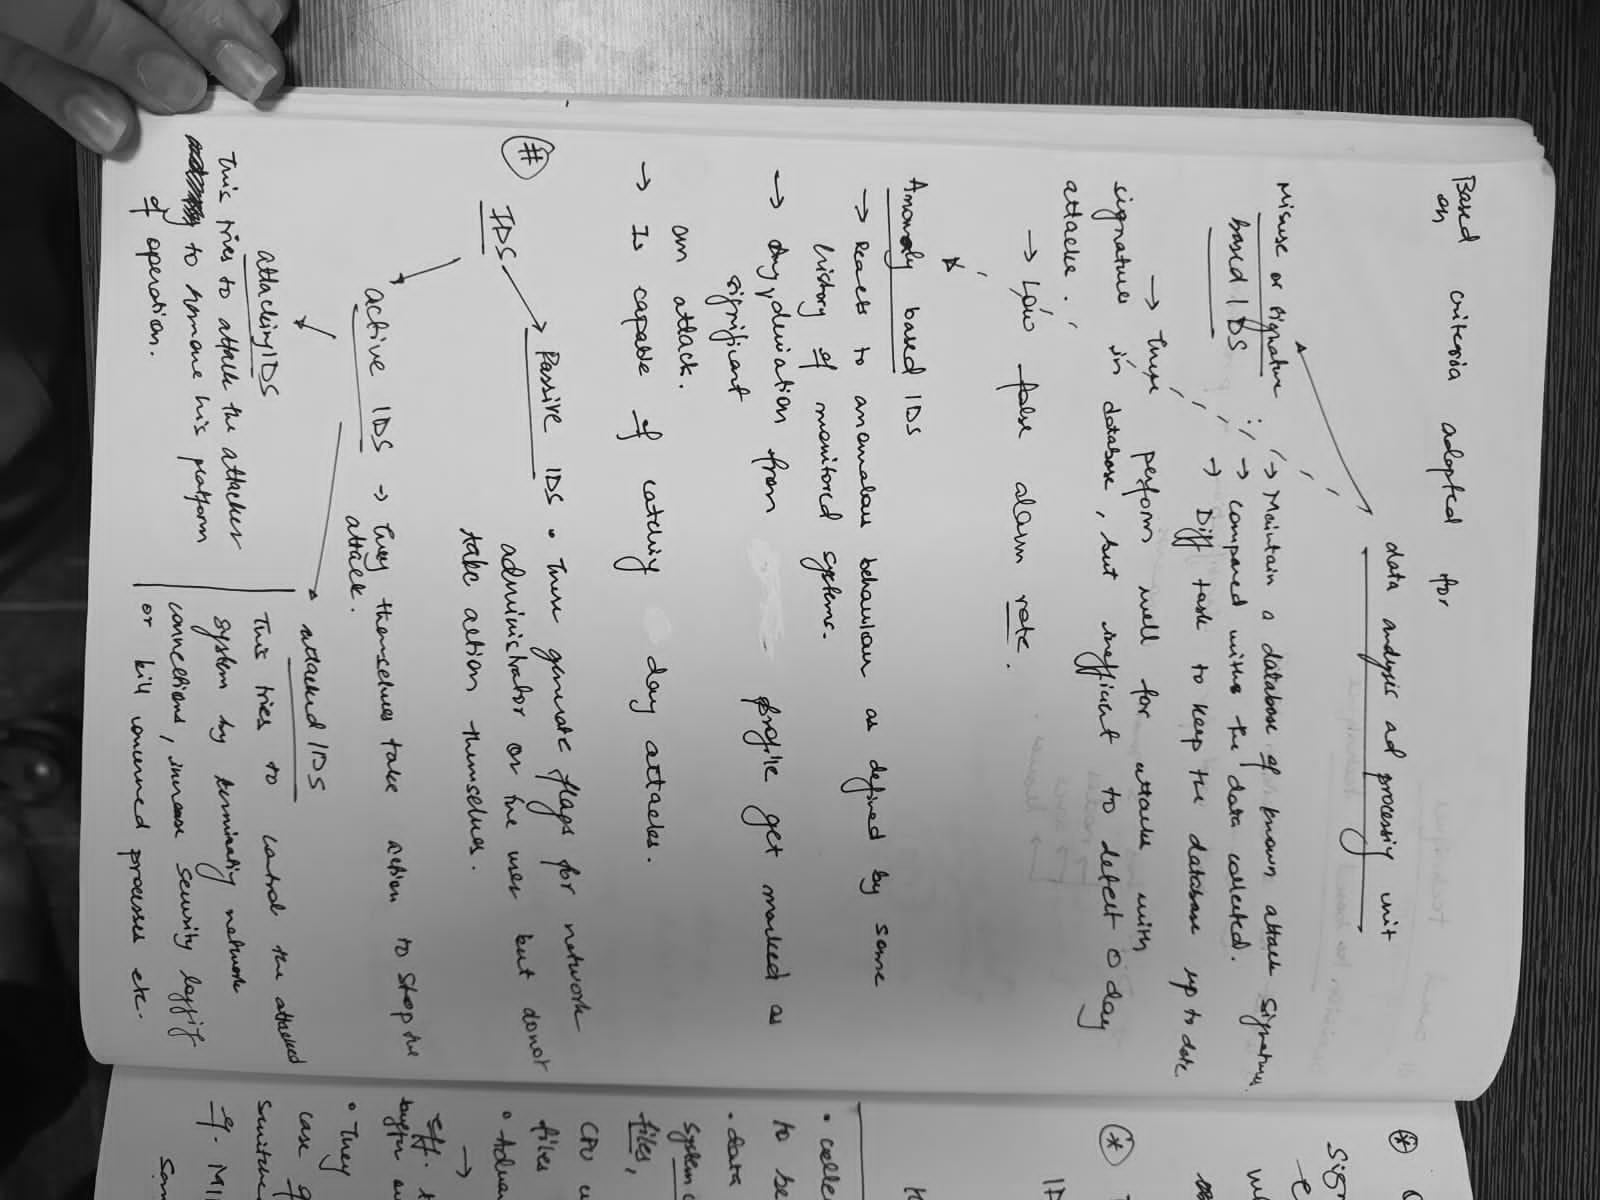 Based criteria adopted for
on
data analysis ad processig unit
Misuse or signature
based IDS
→ Maintain a database of known attack signatures.
→ compared withs the data collected.
→ Diff task to keep the database up to date
→ These perform well for attacks with
signatures in database, but inefficient to detect 0 day
attacks.
→ Low false alarm rate.
Anomaly based IDS
→ Reacts to anomalous behaviour as defined by some
history of monitored systems.
→ Any deviation from profile get marked as
significant
an attack.
→ Is capable of catching day attacks.
#
IDS
Passive IDS • These generate flags for network
administrator or the user but donot
take action themselves.
active IDS → They themselves take action to stop the
attack.
attacking IDS
This tries to attack the attacker
to remove his platform
of operation.
attacked IDS
This tries to control the attacked
system by terminatig network
connections, increase security loggig
or kill concerned processes etc.
• colle
to be
• data
system
files,
CPU u
files
• Advan
→
eff. t
• They
case of
switche
eg. MI
Som